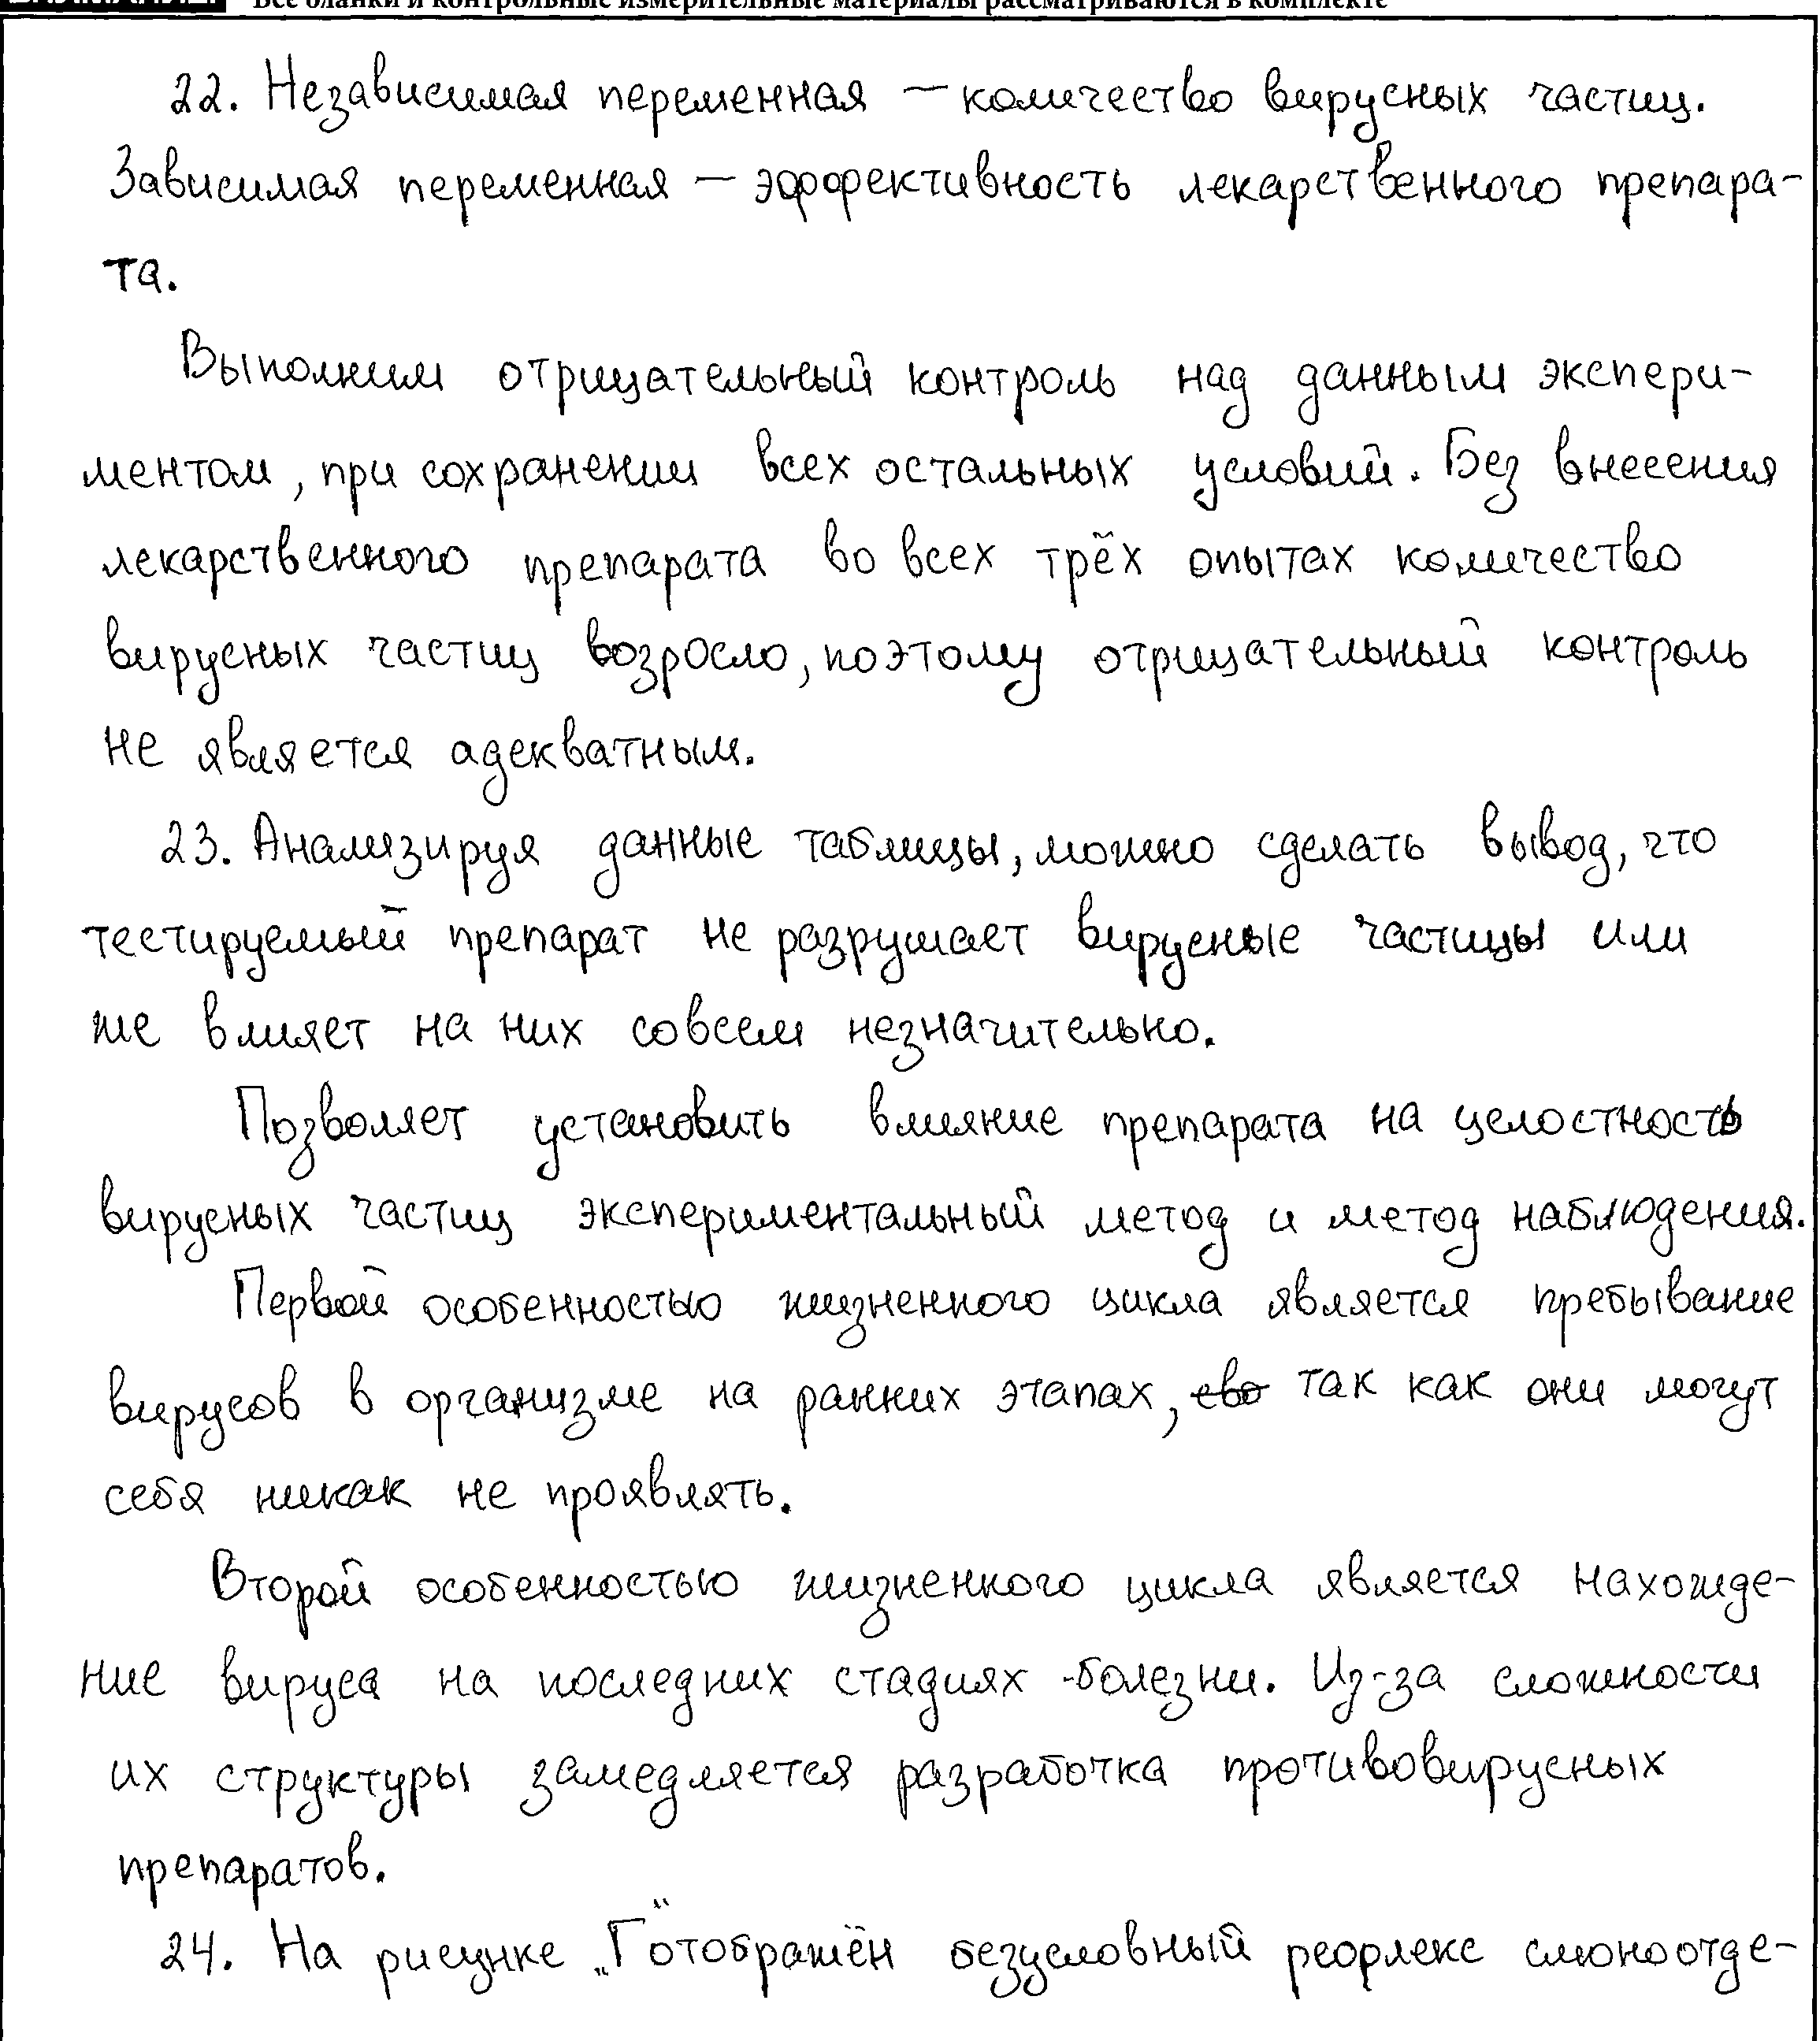 Все бланки и контрольные измерительные материалы рассматриваются в комплекте
22. Независимая переменная – количество вирусных частиц.
Зависимая переменная – эффективность лекарственного препара-
та.
Выполним отрицательный контроль над данным экспери-
ментом, при сохранении всех остальных условий. Без внесения
лекарственного препарата во всех трёх опытах количество
вирусных частиц возросло, поэтому отрицательный контроль
не является адекватным.
23. Анализируя данные таблицы, можно сделать вывод, что
тестируемый препарат не разрушает вирусные частицы или
же влияет на них совсем незначительно.
Позволяет установить влияние препарата на целостность
вирусных частиц экспериментальный метод и метод наблюдения.
Первой особенностью жизненного цикла является пребывание
вирусов в организме на ранних этапах, так как они могут
себя никак не проявлять.
Второй особенностью жизненного цикла является нахожде-
ние вируса на последних стадиях болезни. Из-за сложности
их структуры замедляется разработка противовирусных
препаратов.
24. На рисунке „Г“ отображён безусловный рефлекс слюноотде-